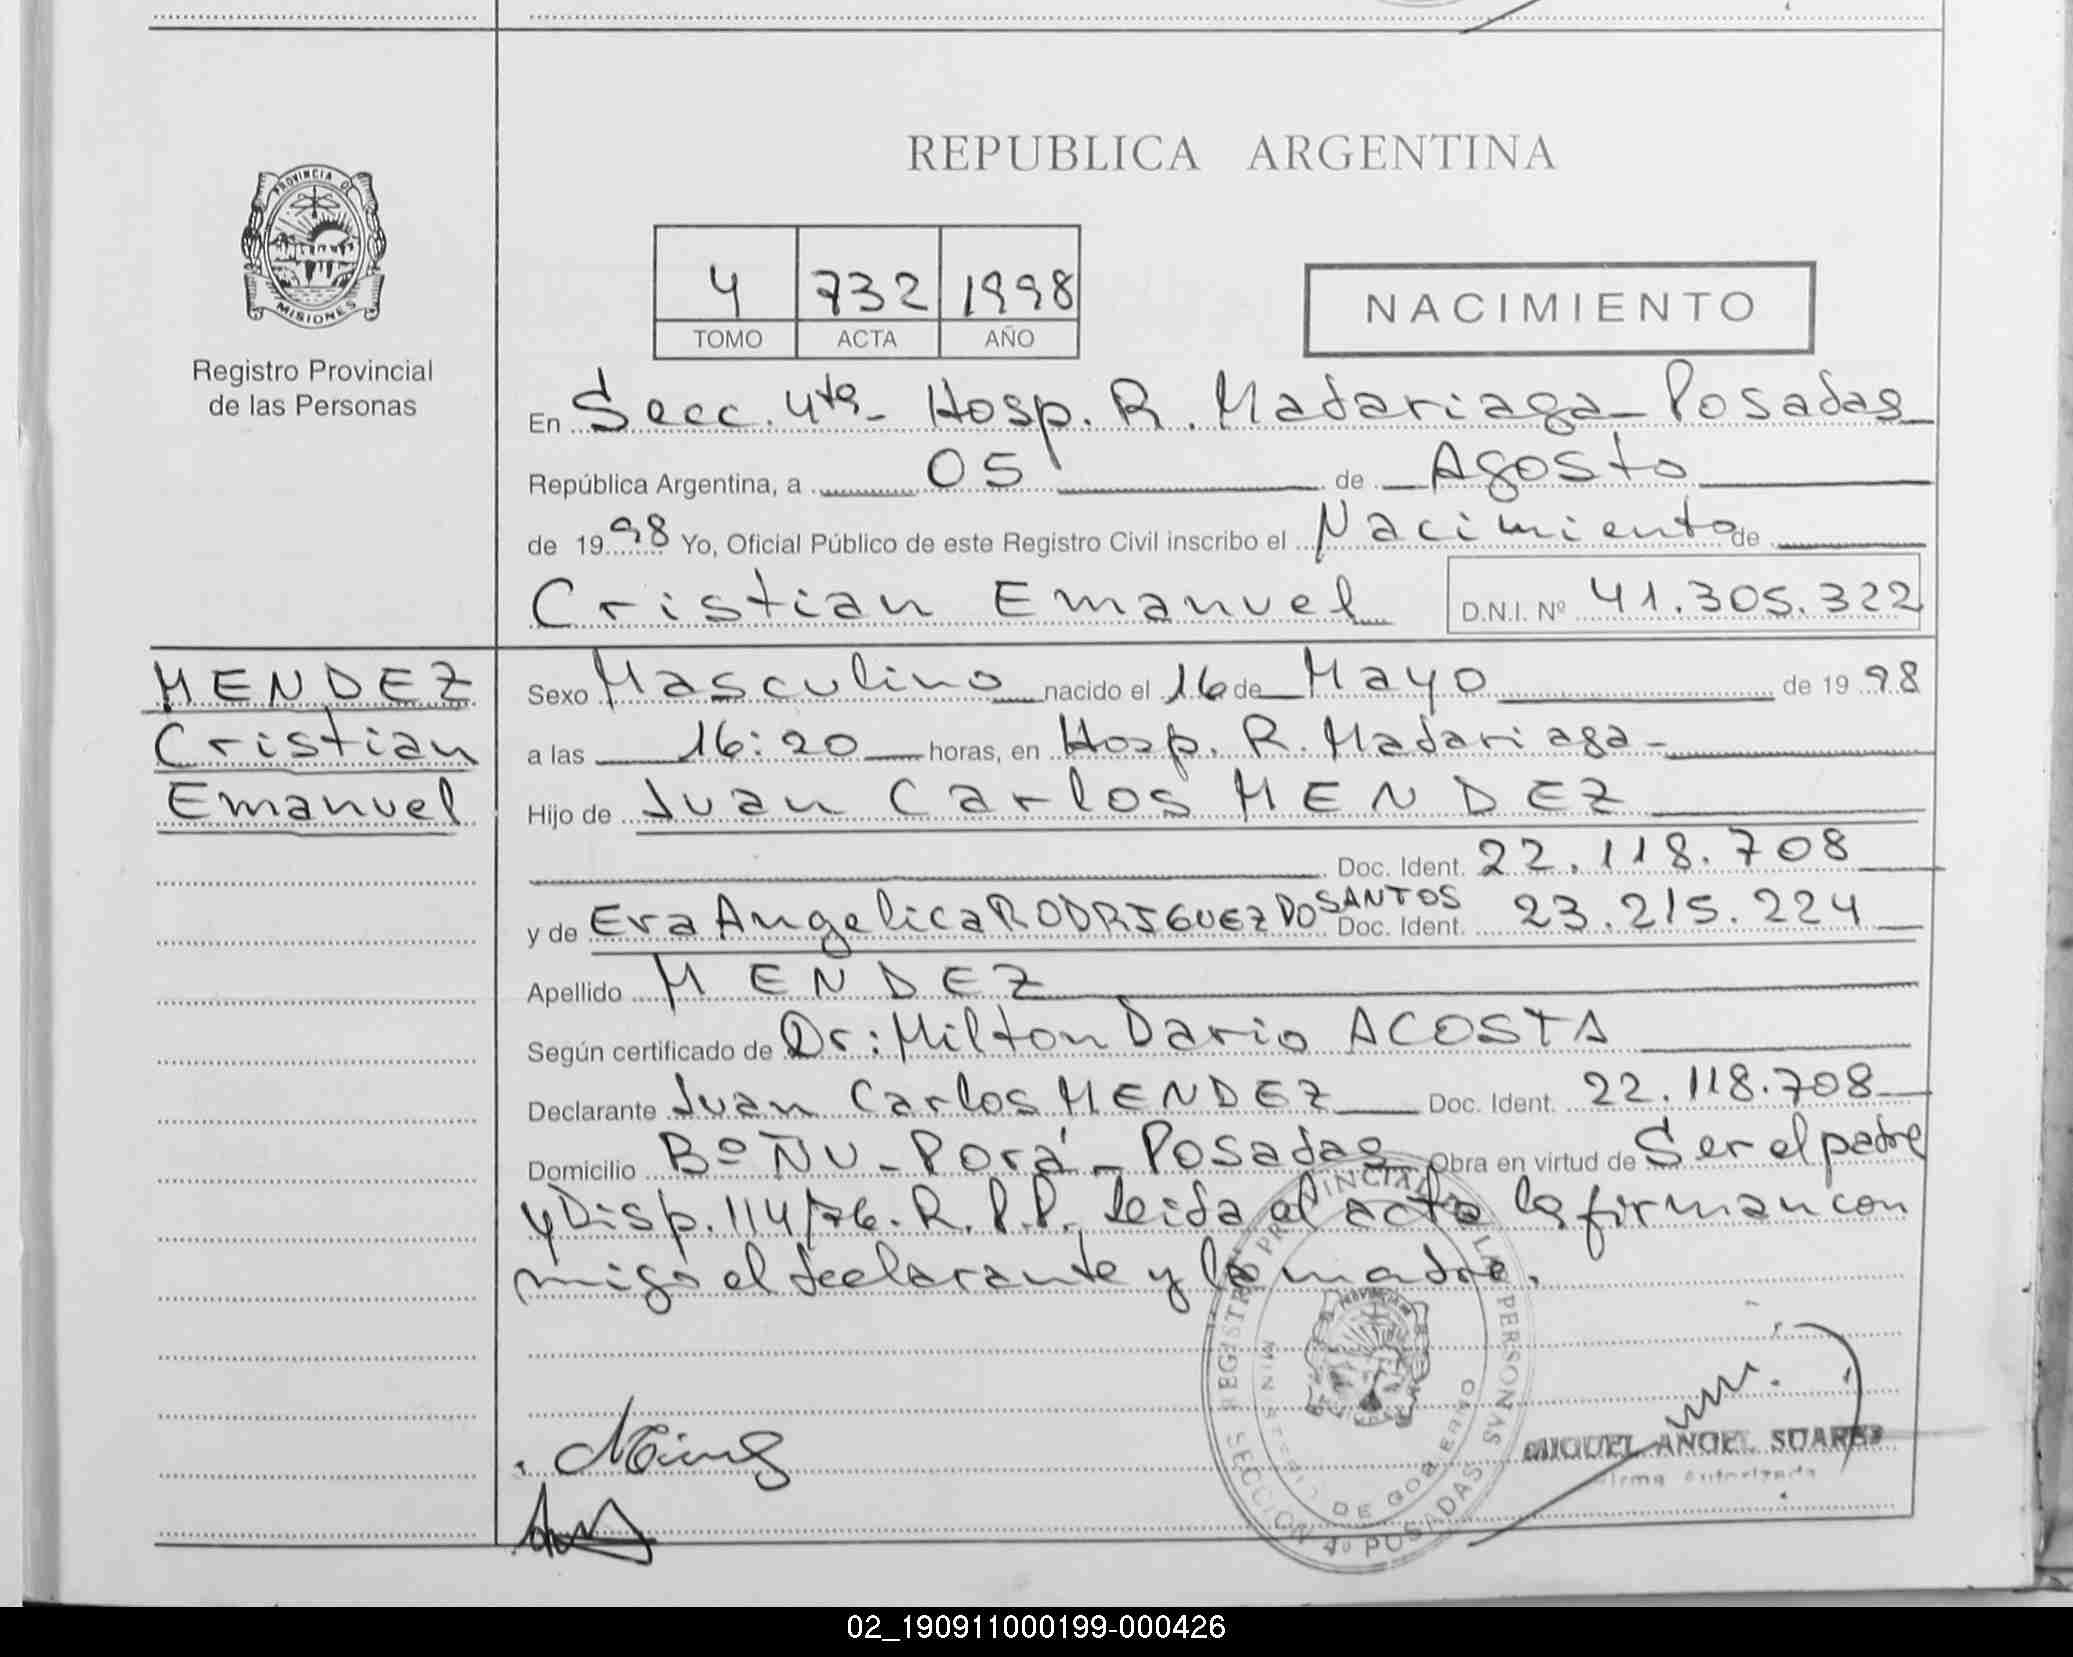 REPUBLICA ARGENTINA
PROVINCIA DE
MISIONES
Registro Provincial
de las Personas
4 732 1998
TOMO ACTA AÑO
NACIMIENTO
En Secc. 4ta - Hosp. R. Madariaga - Posadas
República Argentina, a 05 de Agosto
de 1998 Yo, Oficial Público de este Registro Civil inscribo el Nacimiento de
Cristian Emanuel D.N.I. Nº 41.305.322
MENDEZ
Cristian
Emanuel
Sexo Masculino nacido el 16 de Mayo de 1998
a las 16:20 horas, en Hosp. R. Madariaga -
Hijo de Juan Carlos MENDEZ
Doc. Ident. 22.118.708
y de Eva Angelica RODRIGUEZ DOSANTOS Doc. Ident. 23.215.224
Apellido MENDEZ
Según certificado de Dr: Milton Dario ACOSTA
Declarante Juan Carlos MENDEZ Doc. Ident. 22.118.708
Domicilio Bº ÑU - Porá - Posadas Obra en virtud de Ser el padre
y Disp. 114/76. R.P.P. leida el acta la firman con
migo el declarante y la madre.
REGISTRO PROVINCIAL DE LAS PERSONAS
MINISTERIO DE GOBIERNO
SECCION 4º POSADAS
MIGUEL ANGEL SUAREZ
Firma Autorizada
02_190911000199-000426